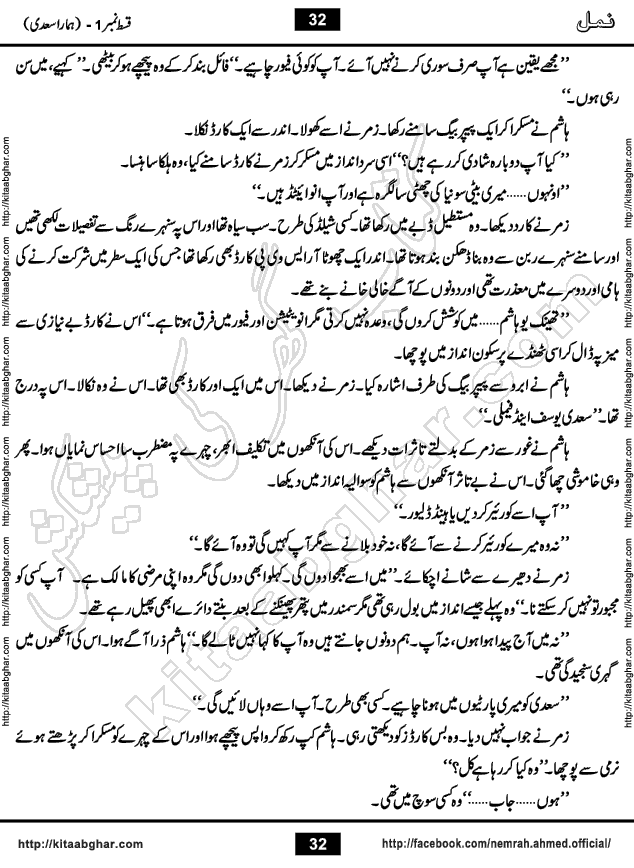 نمل
32
قسط نمبر 1 - (ہمارا سعدی)
’’مجھے یقین ہے آپ صرف سوری کرنے نہیں آئے۔ آپ کو کوئی فیور چاہیے۔‘‘ فائل بند کر کے وہ پیچھے ہو کر بیٹھی۔ ’’کہیے، میں سن
رہی ہوں۔‘‘
ہاشم نے مسکرا کر ایک پیپر بیگ سامنے رکھا۔ زمر نے اسے کھولا۔ اندر سے ایک کارڈ نکلا۔
’’کیا آپ دوبارہ شادی کر رہے ہیں؟‘‘ اسی سرد انداز میں مسکرا کر زمر نے کارڈ سامنے کیا، وہ ہلکا سا ہنسا۔
’’اونہوں...... میری بیٹی سونیا کی چھٹی سالگرہ ہے اور آپ انوائیٹڈ ہیں۔‘‘
زمر نے کارڈ دیکھا۔ وہ مستطیل ڈبے میں رکھا تھا۔ کسی شیلڈ کی طرح۔ سب سیاہ تھا اور اس پہ سنہرے رنگ سے تفصیلات لکھی تھیں
اور سامنے سنہرے ربن سے وہ بنا ڈھکن بند ہوتا تھا۔ اندر ایک چھوٹا آر ایس وی پی کارڈ بھی رکھا تھا جس کی ایک سطر میں شرکت کرنے کی
ہامی اور دوسرے میں معذرت تھی اور دونوں کے آگے خالی خانے بنے تھے۔
’’تھینک یو ہاشم...... میں کوشش کروں گی، وعدہ نہیں کرتی مگر انویٹیشن اور فیور میں فرق ہوتا ہے۔‘‘ اس نے کارڈ بے نیازی سے
میز پہ ڈال کر اسی ٹھنڈے پرسکون انداز میں پوچھا۔
ہاشم نے ابرو سے پیپر بیگ کی طرف اشارہ کیا۔ زمر نے دیکھا۔ اس میں ایک اور کارڈ بھی تھا۔ اس نے وہ نکالا۔ اس پہ درج
تھا۔ ’’سعدی یوسف اینڈ فیملی۔‘‘
ہاشم نے غور سے زمر کے بدلتے تاثرات دیکھے۔ اس کی آنکھوں میں تکلیف ابھر، چہرے پہ مضطرب سا احساس نمایاں ہوا۔ پھر
وہی خاموشی چھا گئی۔ اس نے بے تاثر آنکھوں سے ہاشم کو سوالیہ انداز میں دیکھا۔
’’آپ اسے کورئیر کر دیں یا ہینڈ ڈلیور۔‘‘
’’نہ وہ میرے کورئیر کرنے سے آئے گا، نہ خود بلانے سے مگر آپ کہیں گی تو وہ آئے گا۔‘‘
زمر نے دھیرے سے شانے اچکائے۔ ’’میں اسے بھجوا دوں گی۔ کہلوا بھی دوں گی مگر وہ اپنی مرضی کا مالک ہے۔ آپ کسی کو
مجبور تو نہیں کر سکتے نا۔‘‘ وہ پہلے جیسے انداز میں بول رہی تھی مگر سمندر میں پتھر پھینکنے کے بعد بنتے دائرے ابھی پھیل رہے تھے۔
’’نہ میں آج پیدا ہوا ہوں، نہ آپ۔ ہم دونوں جانتے ہیں وہ آپ کا کہا نہیں ٹالے گا۔‘‘ ہاشم ذرا آگے ہوا۔ اس کی آنکھوں میں
گہری سنجیدگی تھی۔
’’سعدی کو میری پارٹیوں میں ہونا چاہیے۔ کسی بھی طرح۔ آپ اسے وہاں لائیں گی۔‘‘
زمر نے جواب نہیں دیا۔ وہ بس کارڈز کو دیکھتی رہی۔ ہاشم کپ رکھ کر واپس پیچھے ہوا اور اس کے چہرے کو مسکرا کر پڑھتے ہوئے
نرمی سے پوچھا۔ ’’وہ کیا کر رہا ہے کل؟‘‘
’’ہوں...... جاب......‘‘ وہ کسی سوچ میں تھی۔
http://kitaabghar.com
http://kitaabghar.com
http://kitaabghar.com
http://kitaabghar.com
http://kitaabghar.com
http://kitaabghar.com
http://kitaabghar.com
http://kitaabghar.com
http://kitaabghar.com
http://kitaabghar.com
http://kitaabghar.com
http://kitaabghar.com
کتاب گھر کی پیشکش
kitaabghar.com
http://kitaabghar.com
32
http://facebook.com/nemrah.ahmed.official/